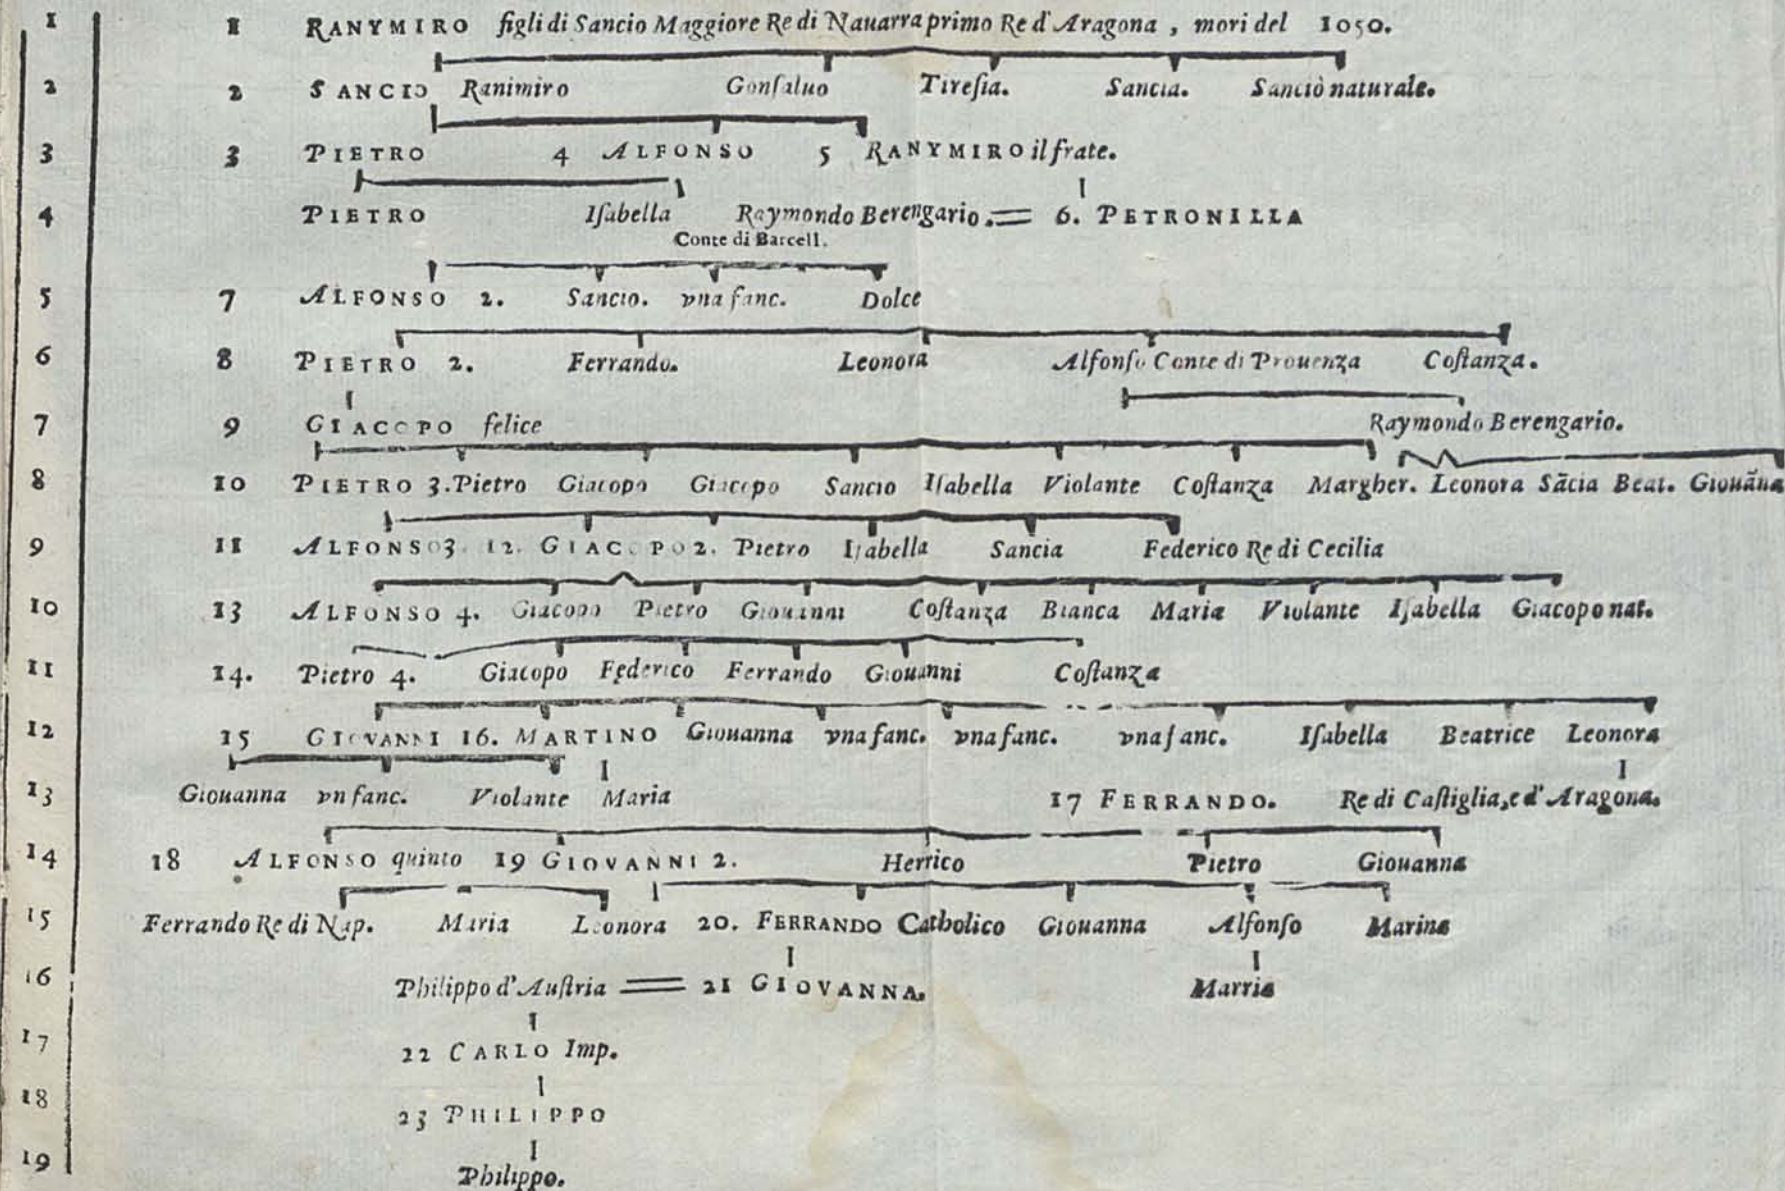 1 1 RANYMIRO figli di Sancio Maggiore Re di Nauarra primo Re d'Aragona, mori del 1050.
2 2 SANCIO Ranimiro Gonſaluo Tireſia. Sancia. Sanciò naturale.
3 3 PIETRO 4 ALFONSO 5 RANYMIRO il frate.
4 PIETRO Iſabella Raymondo Berengario. = 6. PETRONILLA
Conte di Barcell.
5 7 ALFONSO 2. Sancio. vna fanc. Dolce
6 8 PIETRO 2. Ferrando. Leonora Alfonſo Conte di Prouenza Coſtanza.
7 9 GIACOPO felice Raymondo Berengario.
8 10 PIETRO 3. Pietro Giacopo Giacopo Sancio Iſabella Violante Coſtanza Margher. Leonora Sācia Beat. Giouāna
9 11 ALFONSO 3. 12. GIACOPO 2. Pietro Iſabella Sancia Federico Re di Cecilia
10 13 ALFONSO 4. Giacopo Pietro Giouanni Coſtanza Bianca Maria Violante Iſabella Giacopo nat.
11 14. Pietro 4. Giacopo Federico Ferrando Giouanni Coſtanza
12 15 GIOVANNI 16. MARTINO Giouanna vna fanc. vna fanc. vna fanc. Iſabella Beatrice Leonora
13 Giouanna vn fanc. Violante Maria 17 FERRANDO. Re di Caſtiglia, e d'Aragona.
14 18 ALFONSO quinto 19 GIOVANNI 2. Herrico Pietro Giouanna
15 Ferrando Re di Nap. Maria Leonora 20. FERRANDO Catholico Giouanna Alfonſo Marina
16 Philippo d'Auſtria = 21 GIOVANNA. Marria
17 22 CARLO Imp.
18 23 PHILIPPO
19 Philippo.